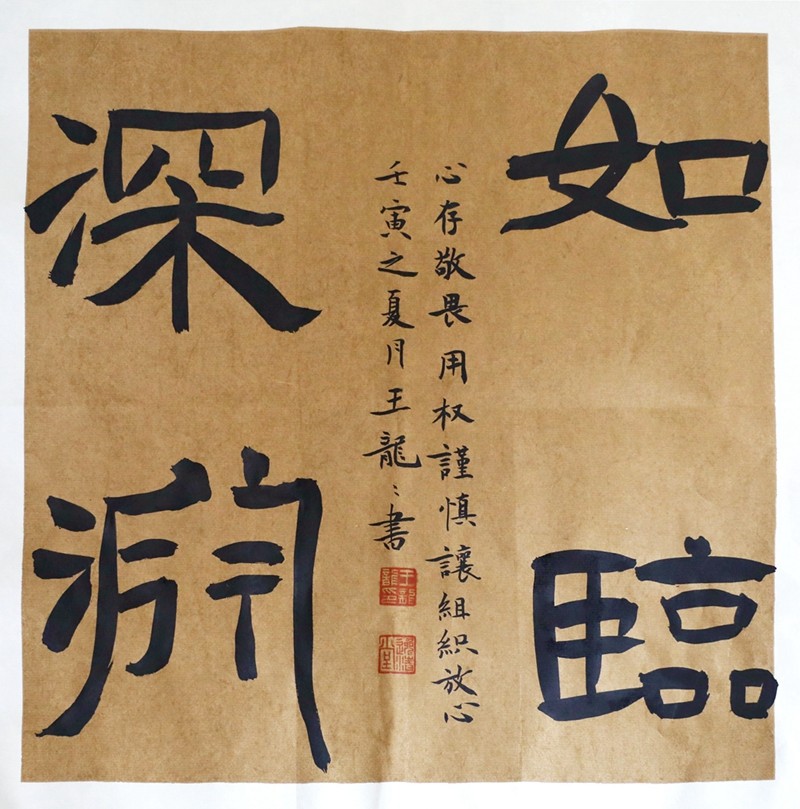 如臨
心存敬畏用权謹慎讓組織放心
壬寅之夏月王龍〻書
王龍龍印
深淵